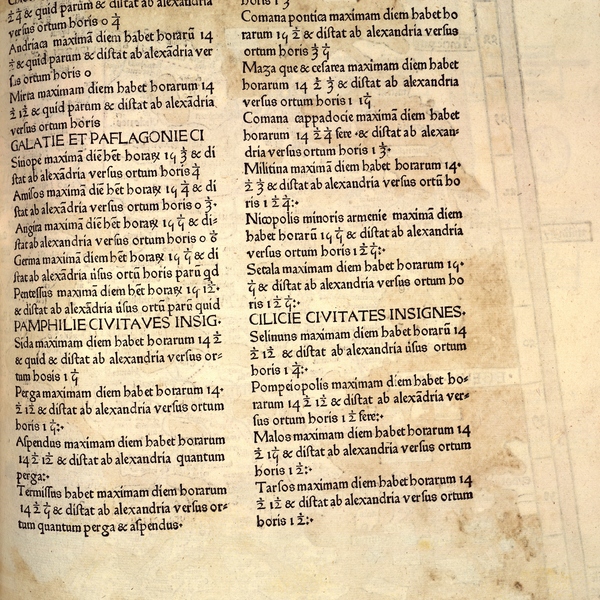 & quid parum & distat ab alexandria
versus ortum horis o 4̅
Andriaca maximā diem habet horarū 14
& quid parum & distat ab alexādria ver
sus ortum horis o
Mirra maximam diem habet horarum 14
2̅ 12̅ & quid parum & distat ab alexādria
versus ortum horis
GALATIE ET PAFLAGONIE CI
Sinope maximā diē hēt horaꝝ 15 3̅ & di
stat ab alexādria versus ortum horis 4̅
Amisos maximā diē hēt horaꝝ 15 4̅ & di
stat ab alexādria versus ortum horis o 3̅·
Angira maximā diē hēt horaꝝ 15 5̅ & di⸗
stat ab alexandria versus ortum horis o 6̅
Germa maximā diem hēt horaꝝ 15 5̅ & di
stat ab alexādria ūsus ortū horis parū qd
Pentessus maximā diem hēt horaꝝ 15 12̅·
& distat ab alexādria ūsus ortū parū quid
PAMPHILIE CIVITAVES INSIG·
Sida maximam diem habet horarum 14 2̅
& quid & distat ab alexandria versus or⸗
tum hosis 1 5̅
Perga maximam diem habet horarum 14·
2̅ 12̅ & distat ab alexandria versus ortum
horis 1 5̅:·
Aspendus maximam diem habet horarum
14 2̅ 12̅ & distat ab alexandria quantum
perga:·
Termissus habet maximam diem horarum
14 2̅ 5̅ & distat ab alexandria versus or⸗
tum quantum perga & aspendus·
horis 1 3̅
Comana pontica maximam diem habet ho
rarum 15 2̅ & distat ab alexandria versus
ortum horis 3̅ 5̅
Maza que & cesarea maximam diem habet
horarum 14 2̅ 3̅ & distat ab alexandria
versus ortum horis 1 15̅
Comana cappadocie maximā diem habet
horarum 14 2̅ 4̅ fere · & distat ab alexan⸗
dria versus ortum horis 1 3̅·
Militina maximam diem habet horarum 14·
2̅ 3̅ & distat ab alexandria versus ortū ho
ris 1 2̅ 4̅:·
Nicopolis minoris armenie maximā diem
habet horarū 15 5̅ & distat ab alexandria
versus ortum horis 1 2̅ 5̅:·
Setala maximam diem habet horarum 15·
5̅ & distat ab alexandria versus ortum ho
ris 1 2̅ 5̅:·
CILICIE CIVITATES INSIGNES·
Selinuns maximam diem habet horarū 14
2̅ 12̅ & distat ab alexandria ūsus ortum
horis 1 4̅:·
Pompeiopolis maximam diem habet ho⸗
rarum 14 2̅ 12̅ & distat ab alexādria ver⸗
sus ortum horis 1 2̅ fere:·
Malos maximam diem habet horarum 14
2̅ 15̅ & distat ab alexandria versus ortum
horis 1 2̅:·
Tarsos maximam diem habet horarum 14
2̅ 12̅ & distat ab alexandria versus ortum
horis 1 2̅:·